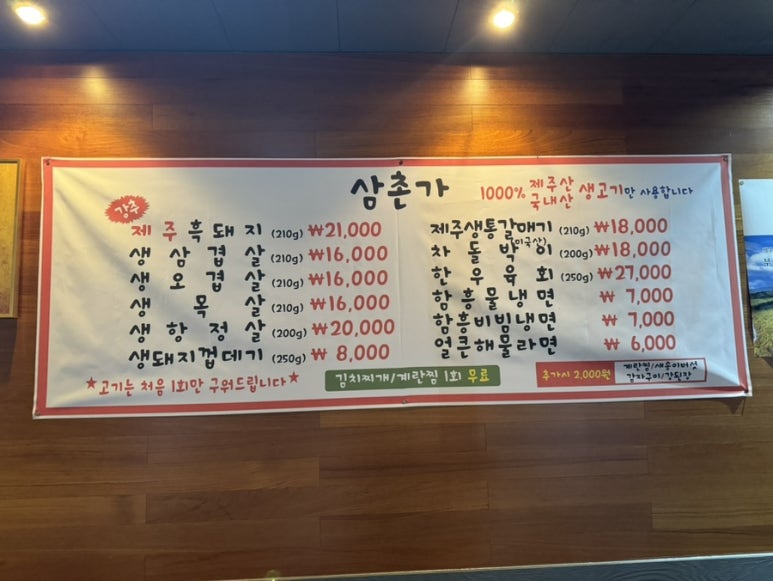 삼촌가
1000% 제주산 국내산 생고기만 사용합니다
강추
제주흑돼지 (210g) ₩21,000
생삼겹살 (210g) ₩16,000
생오겹살 (210g) ₩16,000
생목살 (210g) ₩16,000
생항정살 (200g) ₩20,000
생돼지껍데기 (250g) ₩8,000
★고기는 처음 1회만 구워드립니다★
제주생통갈매기 (210g) ₩18,000
차돌박이 (미국산) (200g) ₩18,000
한우육회 (250g) ₩27,000
함흥물냉면 ₩7,000
함흥비빔냉면 ₩7,000
얼큰해물라면 ₩6,000
김치찌개/계란찜 1회 무료
추가시 2,000원
계란찜/새송이버섯
감자구이/강된장